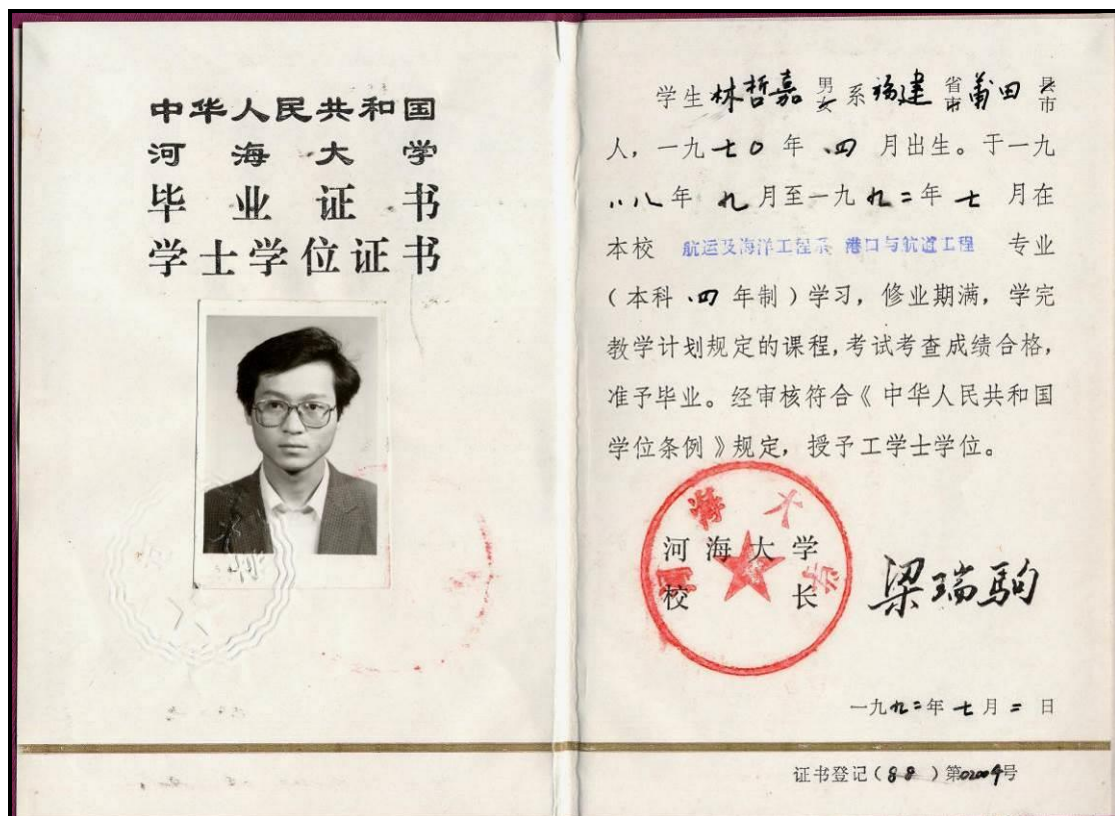 中华人民共和国
河海大学
毕业证书
学士学位证书
学生林哲嘉 男女 系福建 省市 莆田 县市
人，一九七〇年 四 月出生。于一九
八八年 九 月至一九九二年 七 月在
本校 航运及海洋工程系 港口与航道工程 专业
（本科 四 年制）学习，修业期满，学完
教学计划规定的课程，考试考查成绩合格，
准予毕业。经审核符合《中华人民共和国
学位条例》规定，授予工学士学位。
河海大学
河海大学
校长
梁瑞驹
一九九二年七月二日
证书登记（88）第02009号